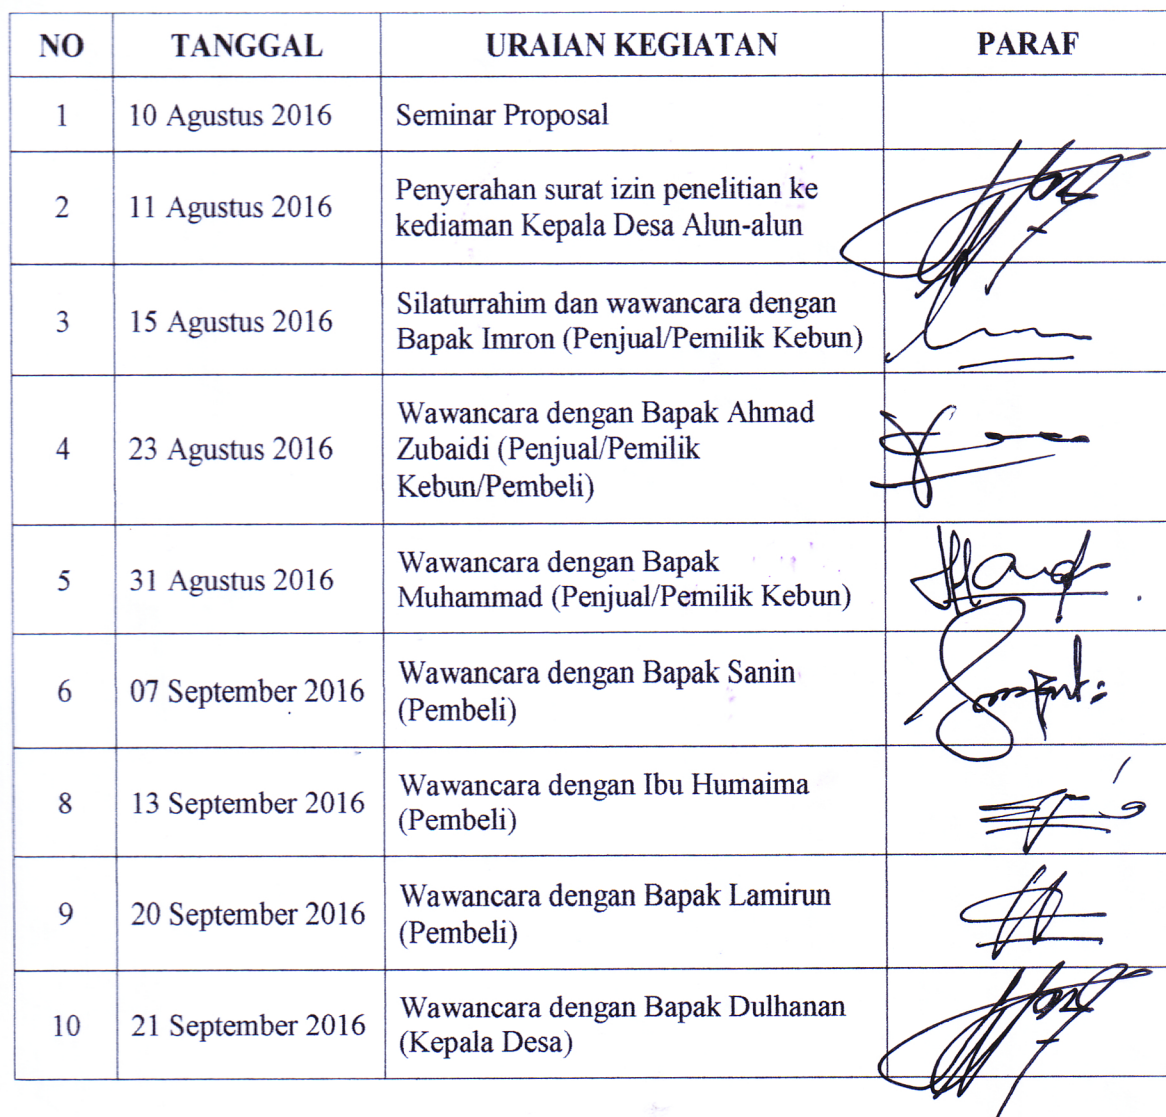 NO TANGGAL URAIAN KEGIATAN PARAF
1 10 Agustus 2016 Seminar Proposal
2 11 Agustus 2016 Penyerahan surat izin penelitian ke
kediaman Kepala Desa Alun-alun
3 15 Agustus 2016 Silaturrahim dan wawancara dengan
Bapak Imron (Penjual/Pemilik Kebun)
4 23 Agustus 2016 Wawancara dengan Bapak Ahmad
Zubaidi (Penjual/Pemilik
Kebun/Pembeli)
5 31 Agustus 2016 Wawancara dengan Bapak
Muhammad (Penjual/Pemilik Kebun)
6 07 September 2016 Wawancara dengan Bapak Sanin
(Pembeli)
8 13 September 2016 Wawancara dengan Ibu Humaima
(Pembeli)
9 20 September 2016 Wawancara dengan Bapak Lamirun
(Pembeli)
10 21 September 2016 Wawancara dengan Bapak Dulhanan
(Kepala Desa)